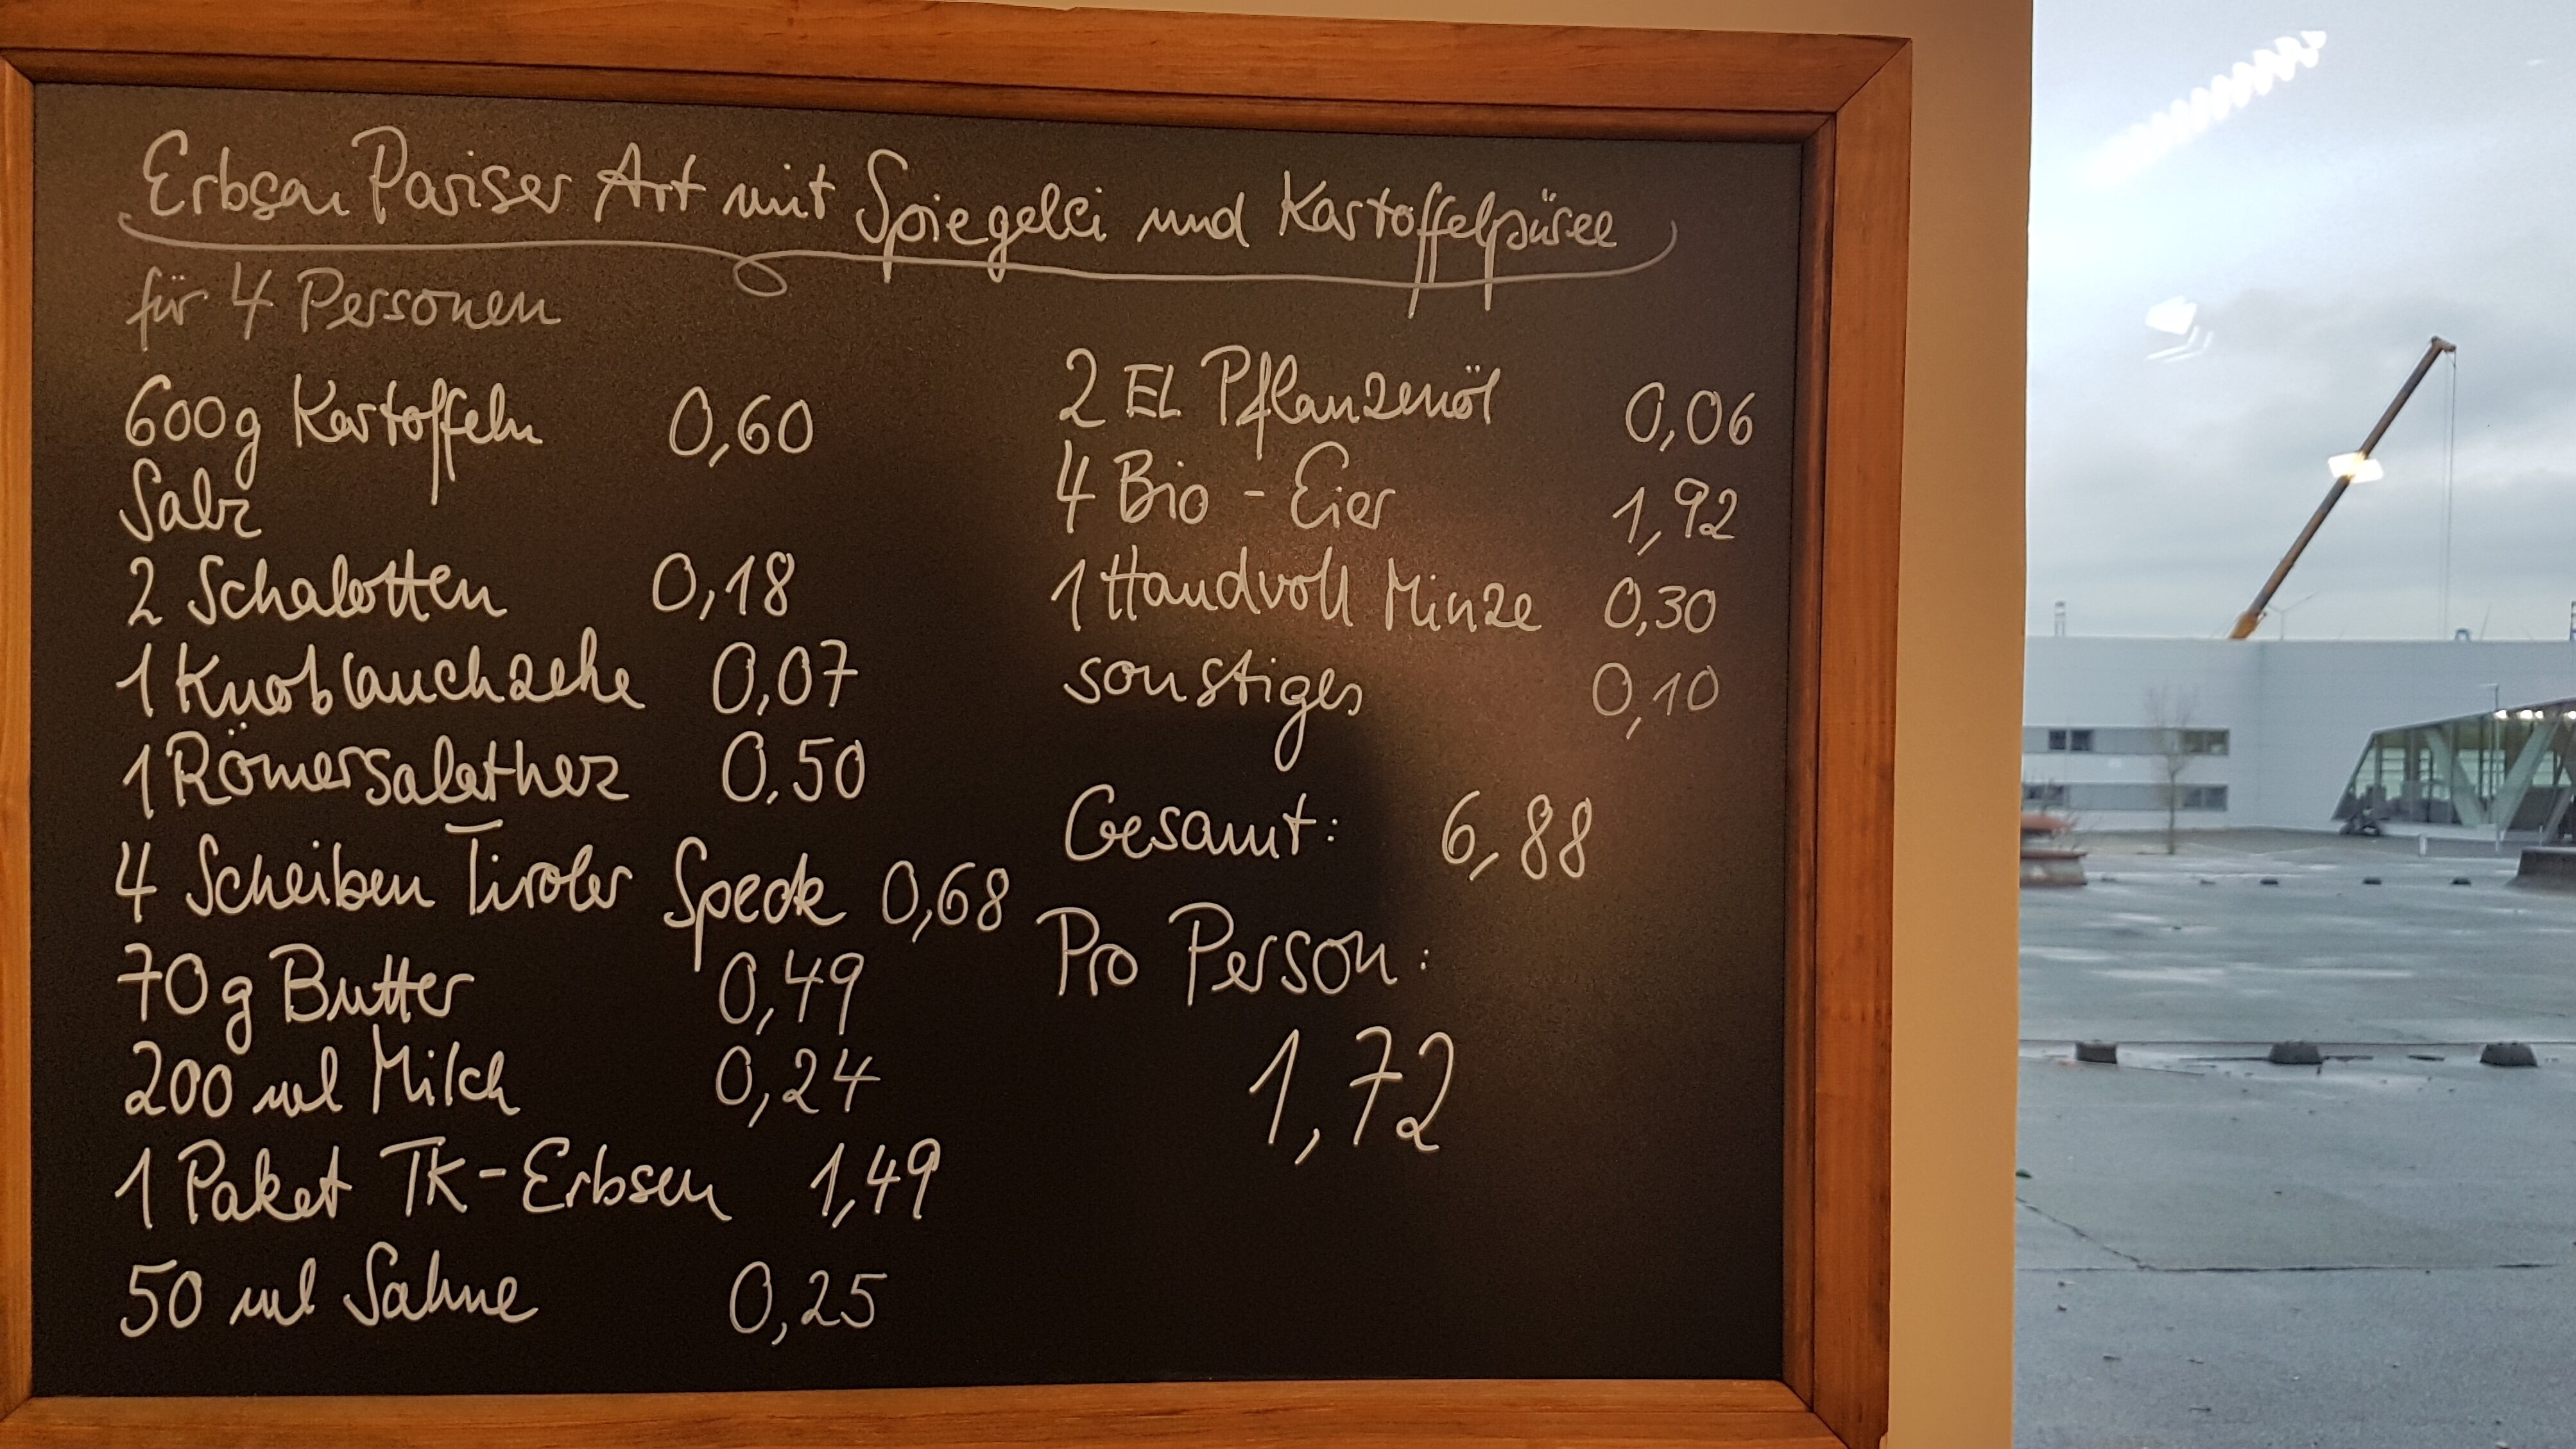 Erbsen Pariser Art mit Spiegelei und Kartoffelpüree
für 4 Personen
600g Kartoffeln 0,60
Salz
2 Schalotten 0,18
1 Knoblauchzehe 0,07
1 Römersalatherz 0,50
4 Scheiben Tiroler Speck 0,68
70g Butter 0,49
200 ml Milch 0,24
1 Paket TK-Erbsen 1,49
50 ml Sahne 0,25
2 EL Pflanzenöl 0,06
4 Bio - Eier 1,92
1 Handvoll Minze 0,30
sonstiges 0,10
Gesamt: 6,88
Pro Person:
1,72